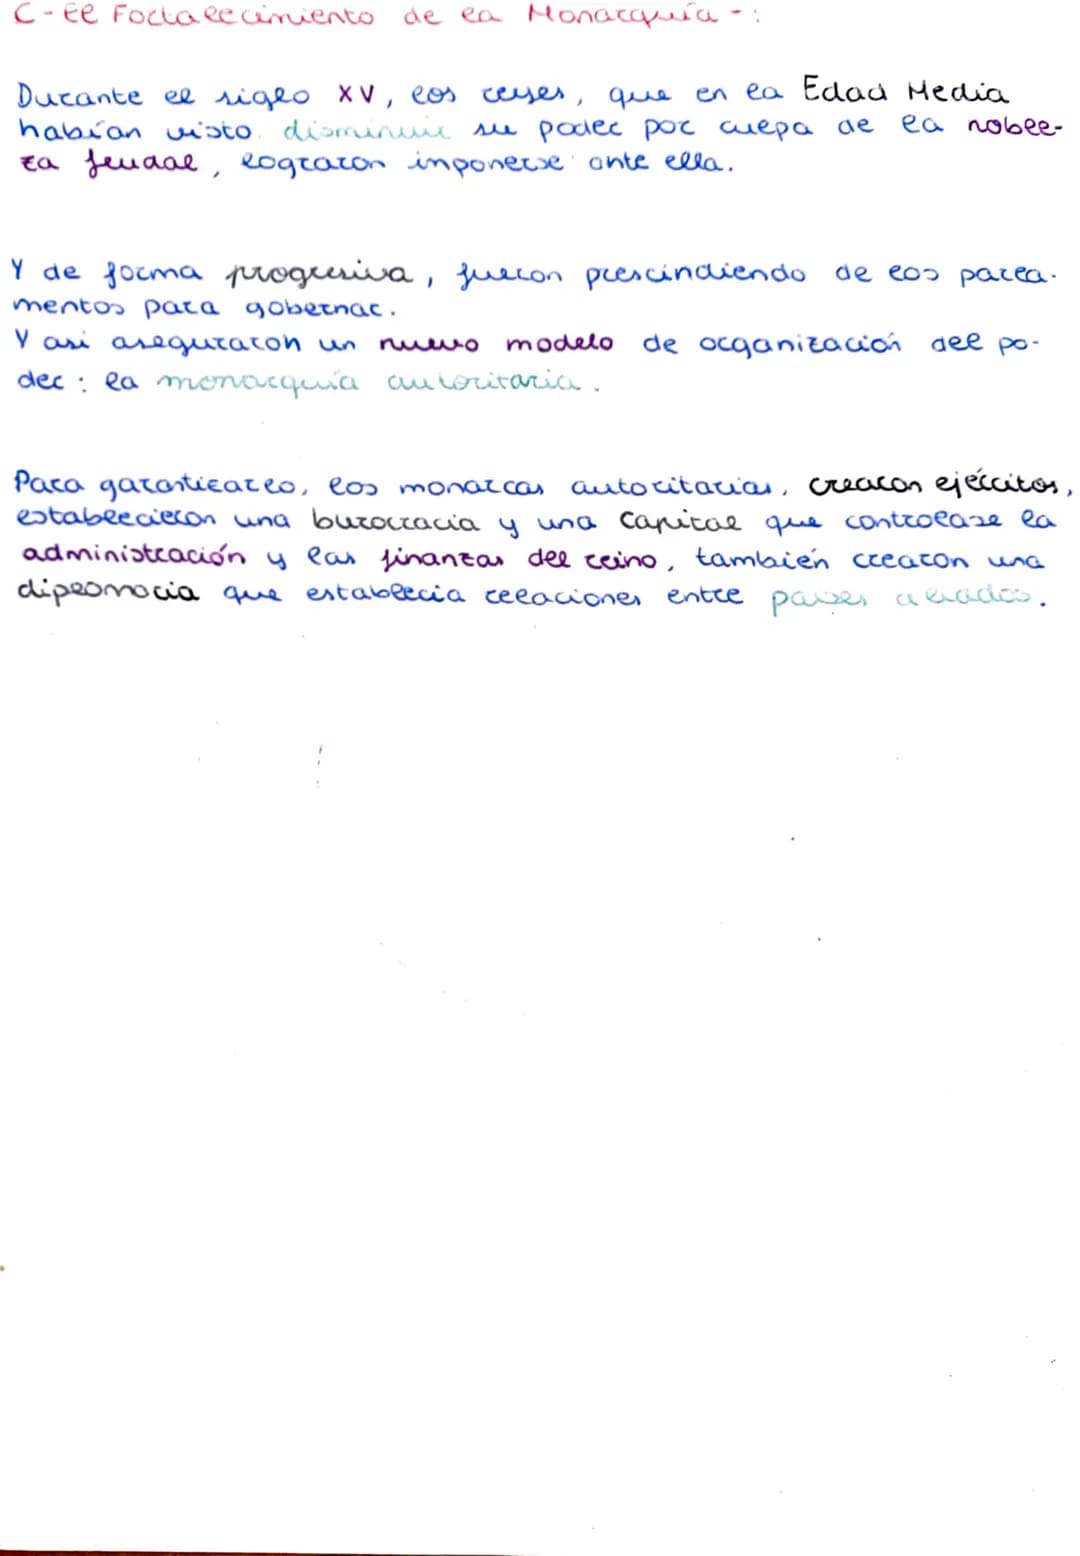 C-El Fortalecimiento de la Monarquía -:
Durante el siglo XV, los reyes, que en la Edad Media
habían visto disminuir su poder por culpa de la noble-
za feudal, lograron imponerse ante ella.
Y de forma progresiva, fueron prescindiendo de los parla-
mentos para gobernar.
Y asi aseguraron un nuevo modelo de organización del po-
der: la monarquía autoritaria.
Para garantizarlo, los monarcas autoritarias, crearon ejércitos,
establecieron una burocracia y una capital que controlase la
administración y las finanzas del reino, también crearon una
diplomacia que establecia relaciones entre paises aliados.